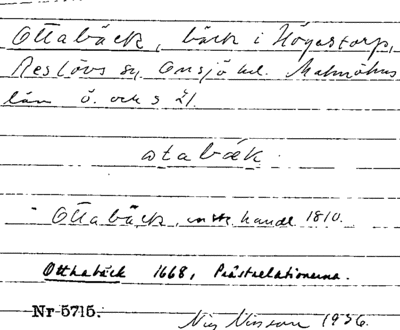 Ottabäck, bäck i Högastorp,
Reslövs sn, Onsjö hd. Malmöhus
län ö. och s
åtabæk.
Ottabäck, 1810.
Otthabäck 1668, Prästrelationerna.
Nr 5715.
Nils Nilsson 1936.